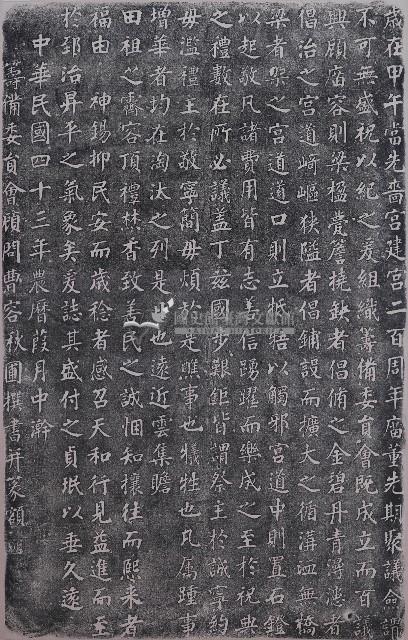 歲在甲午當先嗇宮建宮二百周年廟董先期聚議僉謂
不可無盛祝以紀之爰組織籌備委員會既成立而百議
興顧廟容則梁楹甍簷撓缺者倡脩之金碧丹青漫漶者
倡治之宮道崎嶇狹隘者倡鋪設而擴大之循溝洫無橋
梁者架之宮道道口則立牴牾以觸邪宮道中則置石鐙
以起敬凡諸費用皆有志善信踴躍而樂成之至於祝典
之禮數在所必議蓋丁茲國步艱鉅皆謂祭主於誠寧約
毋濫禮主於敬寧簡毋煩於是醮事也犧牲也凡厲踵事
增華者均在淘汰之列是 也遠近雲集瞻
田祖之霽容頂禮焚香致善民之誠悃知攘往而熙來者
福由 神錫抑民安而歲稔者感召天和行見益進而至
於郅治昇平之氣象矣爰誌其盛付之貞珉以垂久遠
中華民國四十三年農曆葭月中澣
籌備委員會顧問曹容秋圃撰書并篆額